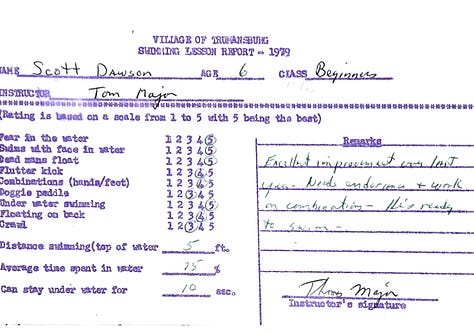 VILLAGE OF TRUMANSBURG
SWIMMING LESSON REPORT - 1979
NAME Scott Dawson AGE 6 CLASS Beginners
INSTRUCTOR Tom Major
(Rating is based on a scale from 1 to 5 with 5 being the best)
Fear in the water 1 2 3 4 5
Swims with face in water 1 2 3 4 5
Dead mans float 1 2 3 4 5
Flutter kick 1 2 3 4 5
Combinations (hands/feet) 1 2 3 4 5
Doggie paddle 1 2 3 4 5
Under water swimming 1 2 3 4 5
Floating on back 1 2 3 4 5
Crawl 1 2 3 4 5
Distance swimming(top of water 5 ft.
Average time spent in water 75 %
Can stay under water for 10 sec.
Remarks
Excellent improvement over last
year. Needs endurance + work
on combination - He's ready
to swim -
Thom Major
Instructor's signature